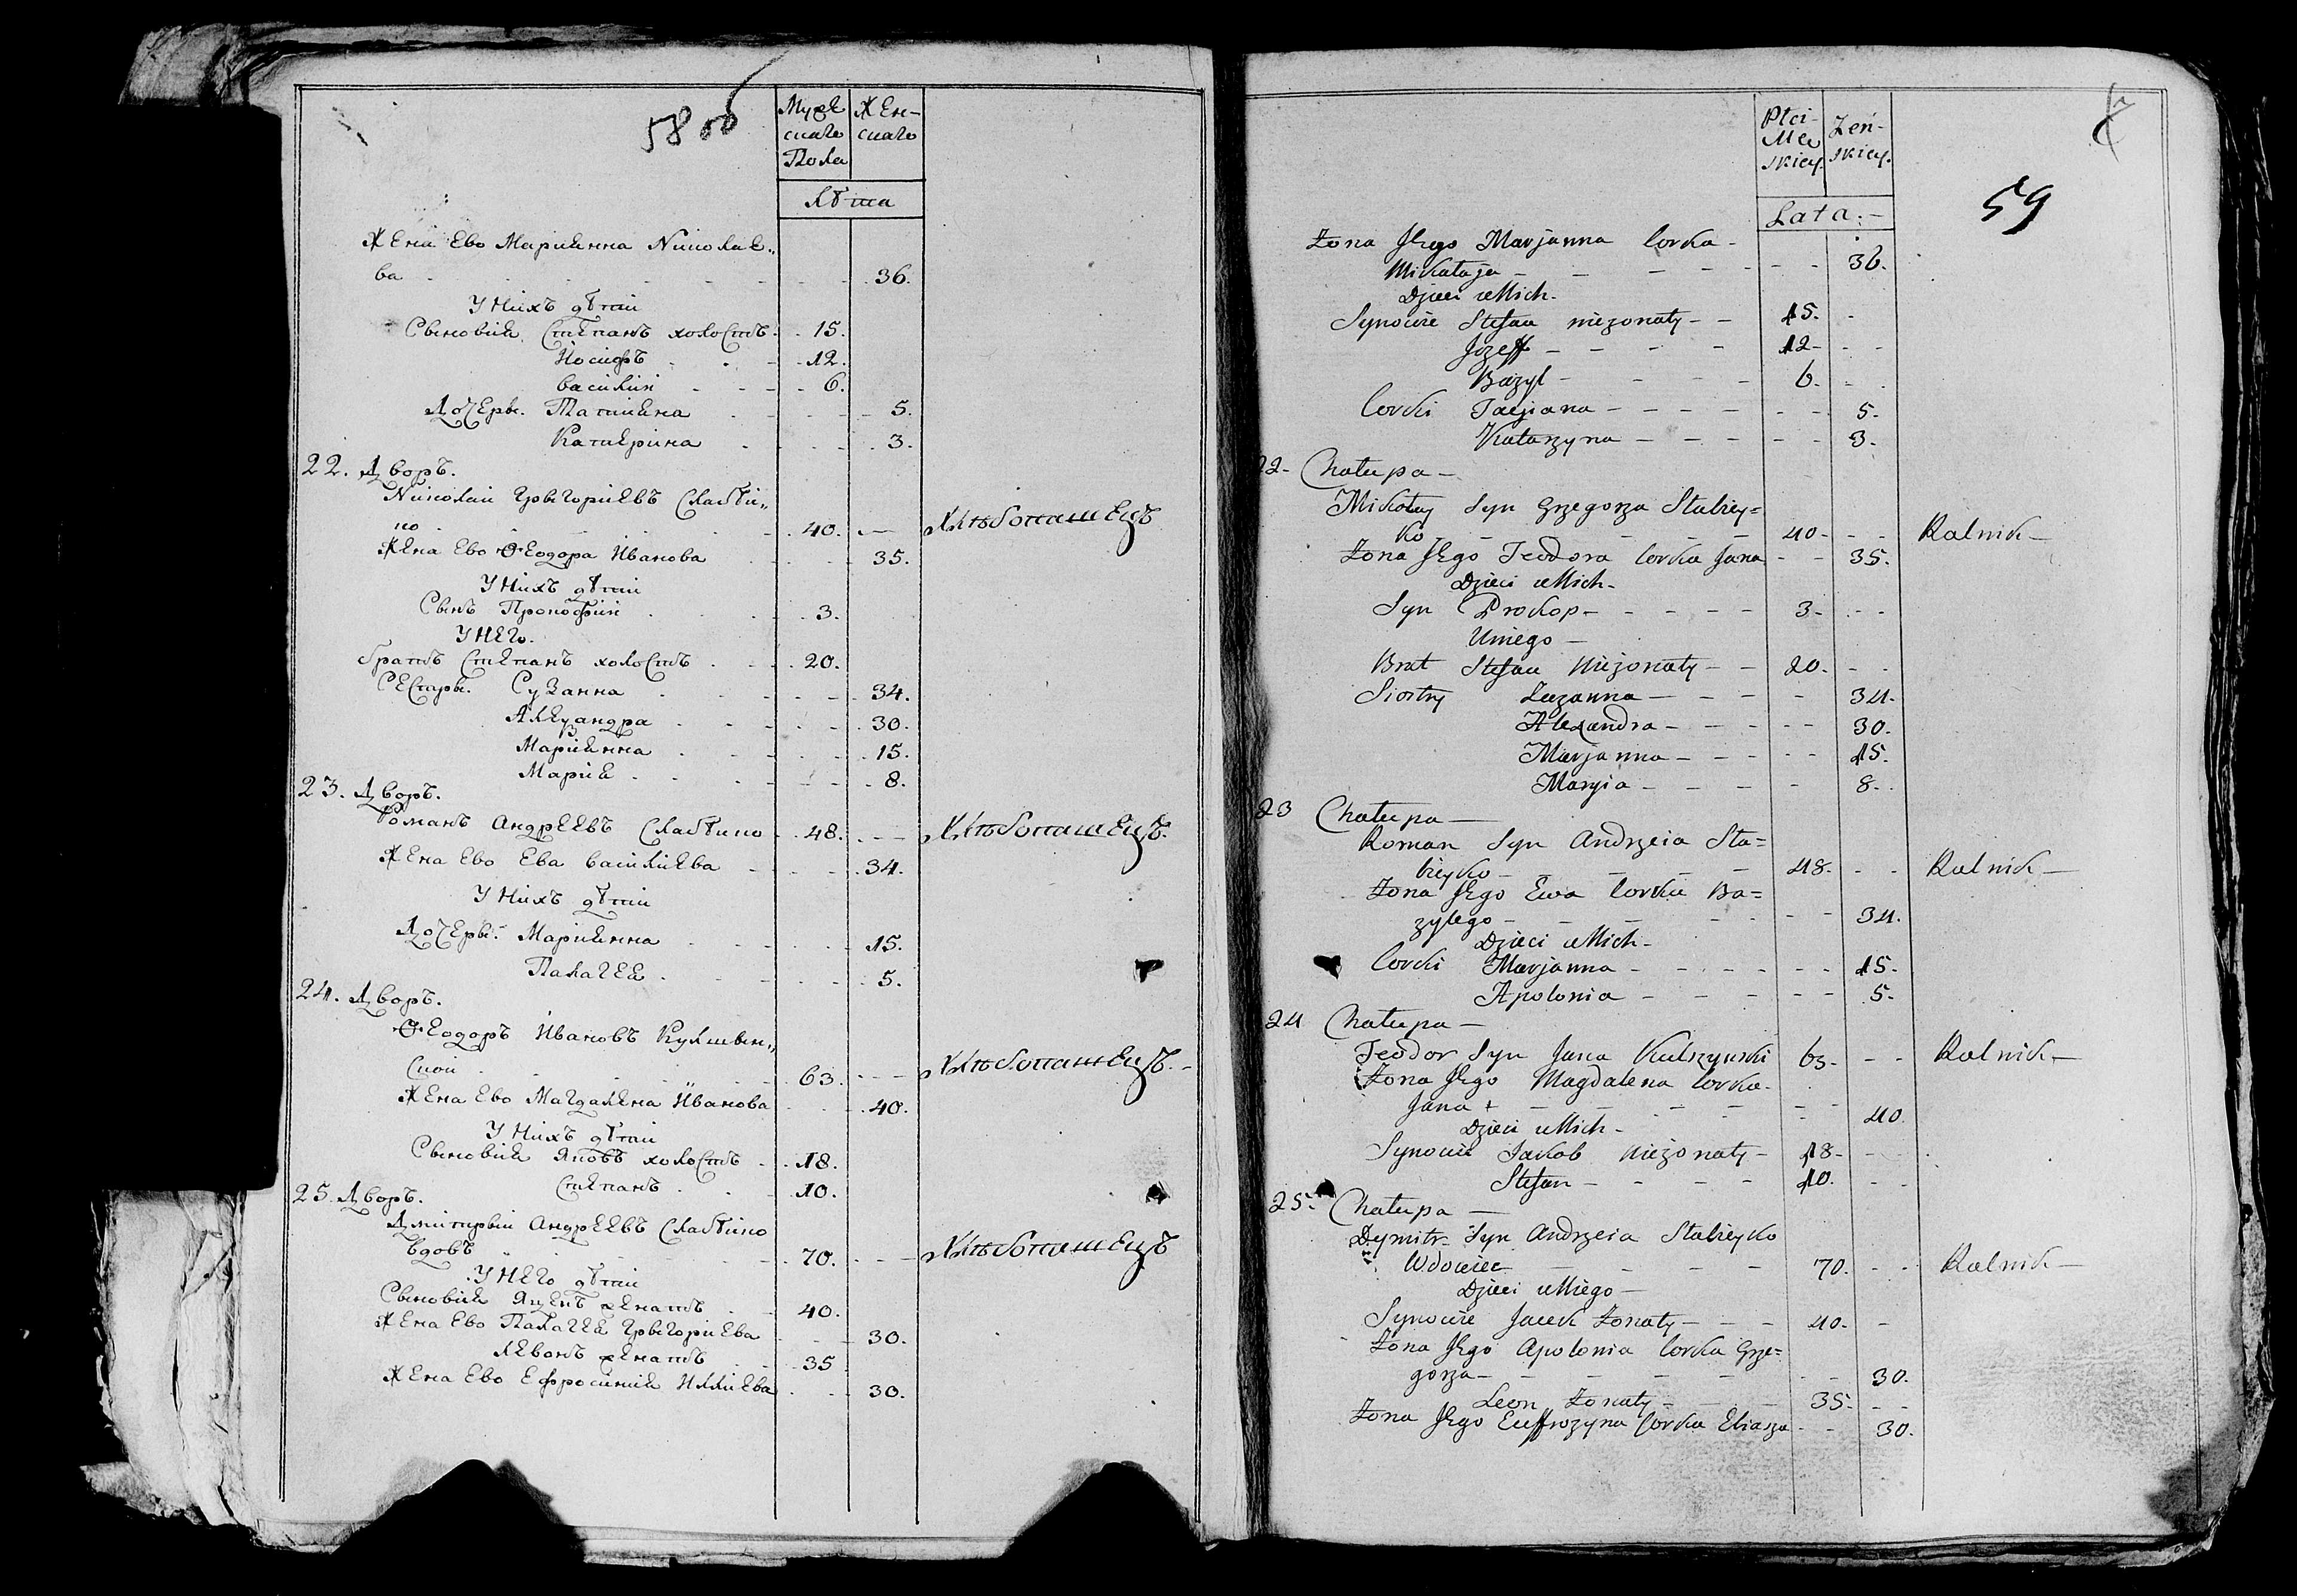 58 об
Мужескаго Пола
Женскаго
лѣта
Жена Ево Марианна Николае„
ва 36.
У Нихъ дѣти
Сыновия Степанъ холостъ 15.
Йосифъ 12.
Василий 6.
Дочеры Татияна 5.
Катерина 3.
22. Дворъ.
Николай Грыгориевъ Слабѣй„
ко 40. Хлѣбопашецъ
Жена Ево Ѳеодора Иванова 35.
У Нихъ дѣти
Сынъ Прокофий 3.
У Него.
братъ Степанъ холостъ 20.
Сестры. Сузанна 34.
Александра 30.
Марианна 15.
Мария 8.
23. Дворъ.
Романъ Андрѣевъ Слабѣйко 48. Хлѣбопашецъ.
Жена Ево Ева Василиева 34.
У Нихъ дѣти
Дочеры. Марианна 15.
Палагея 5.
24. Дворъ.
Ѳеодоръ Ивановъ Кулшын„
ской 63. Хлѣбопашецъ.
Жена Ево Магдалена Иванова 40.
У Нихъ дѣти
Сыновия Яковъ холостъ 18.
Степанъ 10.
25. Дворъ.
Дмитрый Андрѣевъ Слабѣйко
вдовъ 70. Хлѣбопашецъ
У Него дѣти
Сыновия Яцекъ женатъ 40.
Жена Ево Палагея Грыгориева 30.
Левонъ женатъ 35
Жена Ево Ефросиния Иллиева 30.
59
Płci Męskiey.
Żeńskiey.
Lata:
Żona Jego Marjanna Corka
Mikołaja 36.
Dzieci u Nich
Synowie Stefan nieżonaty 15.
Jozeff 12
Bazyl 6.
Corki Tacjiana 5.
Katarzyna 3.
22. Chałupa
Mikołay Syn Grzegorza Słabiey=
ko 40 Rolnik
Żona Jego Teodora Corka Jana 35.
Dzieci u Nich
Syn Prokop 3
U niego
Brat Stefan nieżonaty 20.
Siostry Zuzanna 34.
Alexandra 30.
Marjanna 15.
Maryia 8.
23 Chałupa
Roman Syn Andrzeia Sła=
bieyko 48. Rolnik
Żona Jego Ewa Corka Ba=
zylego 34.
Dzieci u Nich
Corki Marjanna 15.
Apolonia 5.
24 Chałupa
Teodor Syn Jana Kulszynski 63 Rolnik
Żona Jego Magdalena Corka
Jana 40
Dzieci u Nich
Synowie Jakob nieżonaty 18
Stefan 10.
25. Chałupa
Dymitr Syn Andrzeia Słabieyko
Wdowiec 70. Rolnik
Dzieci u Niego
Synowie Jacek Żonaty 40.
Żona Jego Apolonia Corka Grze=
gorza 30.
Leon Żonaty 35.
Żona Jego Euffrozyna Corka Eliasza 30.